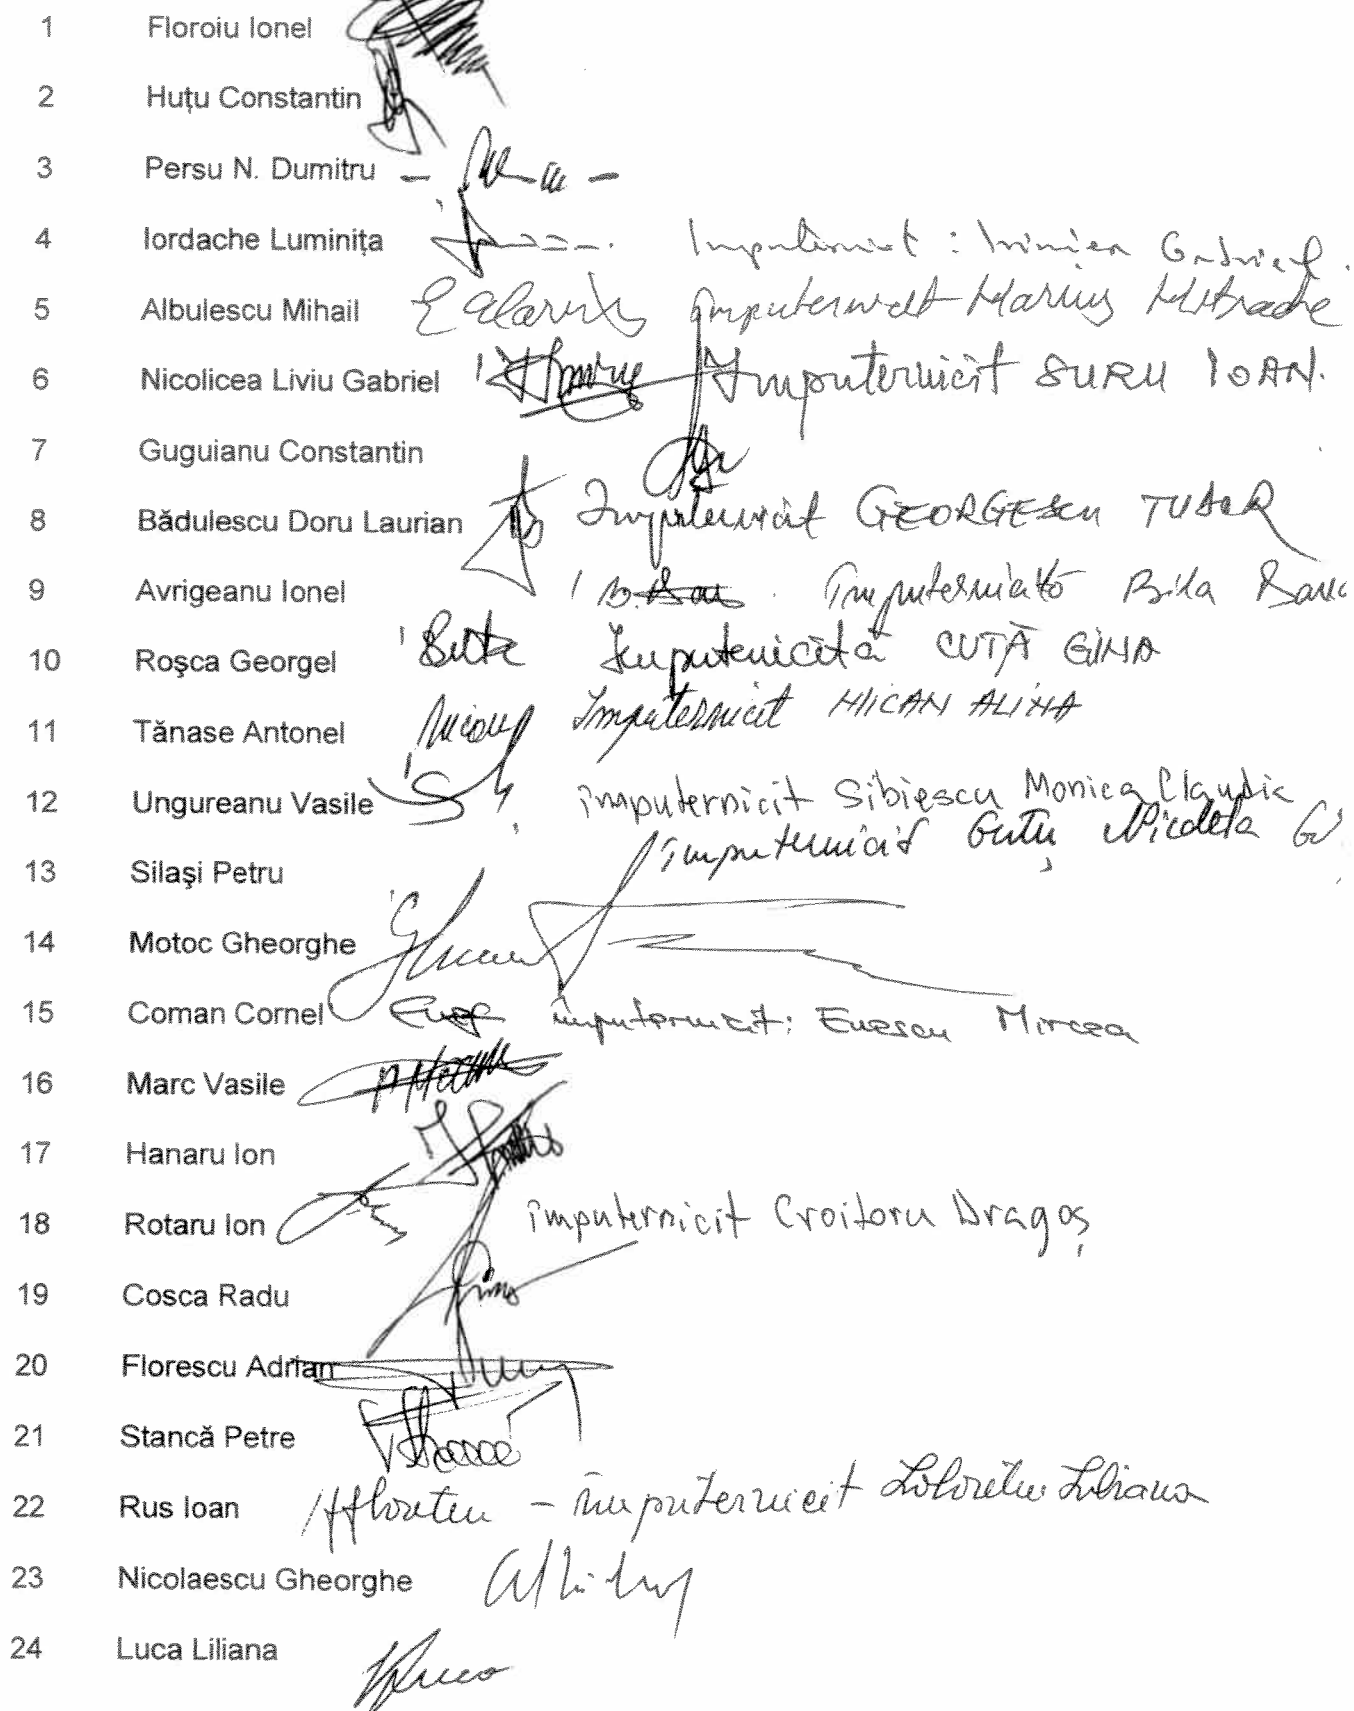 1 Floroiu Ionel
2 Huțu Constantin
3 Persu N. Dumitru
4 Iordache Luminița :
5 Albulescu Mihail Marius
6 Nicolicea Liviu Gabriel Împuternicit SURU IOAN.
7 Guguianu Constantin
8 Bădulescu Doru Laurian Împuternicit GEORGESCU TUDOR
9 Avrigeanu Ionel
10 Roșca Georgel Împutenicită CUȚĂ GINA
11 Tănase Antonel Împuternicit MICAN ALINA
12 Ungureanu Vasile împuternicit Sibiescu Monica Claudia
împuternicit Guțu Nicoleta
13 Silași Petru
14 Motoc Gheorghe
15 Coman Cornel împuternicit: Enescu Mircea
16 Marc Vasile
17 Hanaru Ion
18 Rotaru Ion împuternicit Croitoru Dragoș
19 Cosca Radu
20 Florescu Adrian
21 Stancă Petre
22 Rus Ioan - împuternicit
23 Nicolaescu Gheorghe
24 Luca Liliana